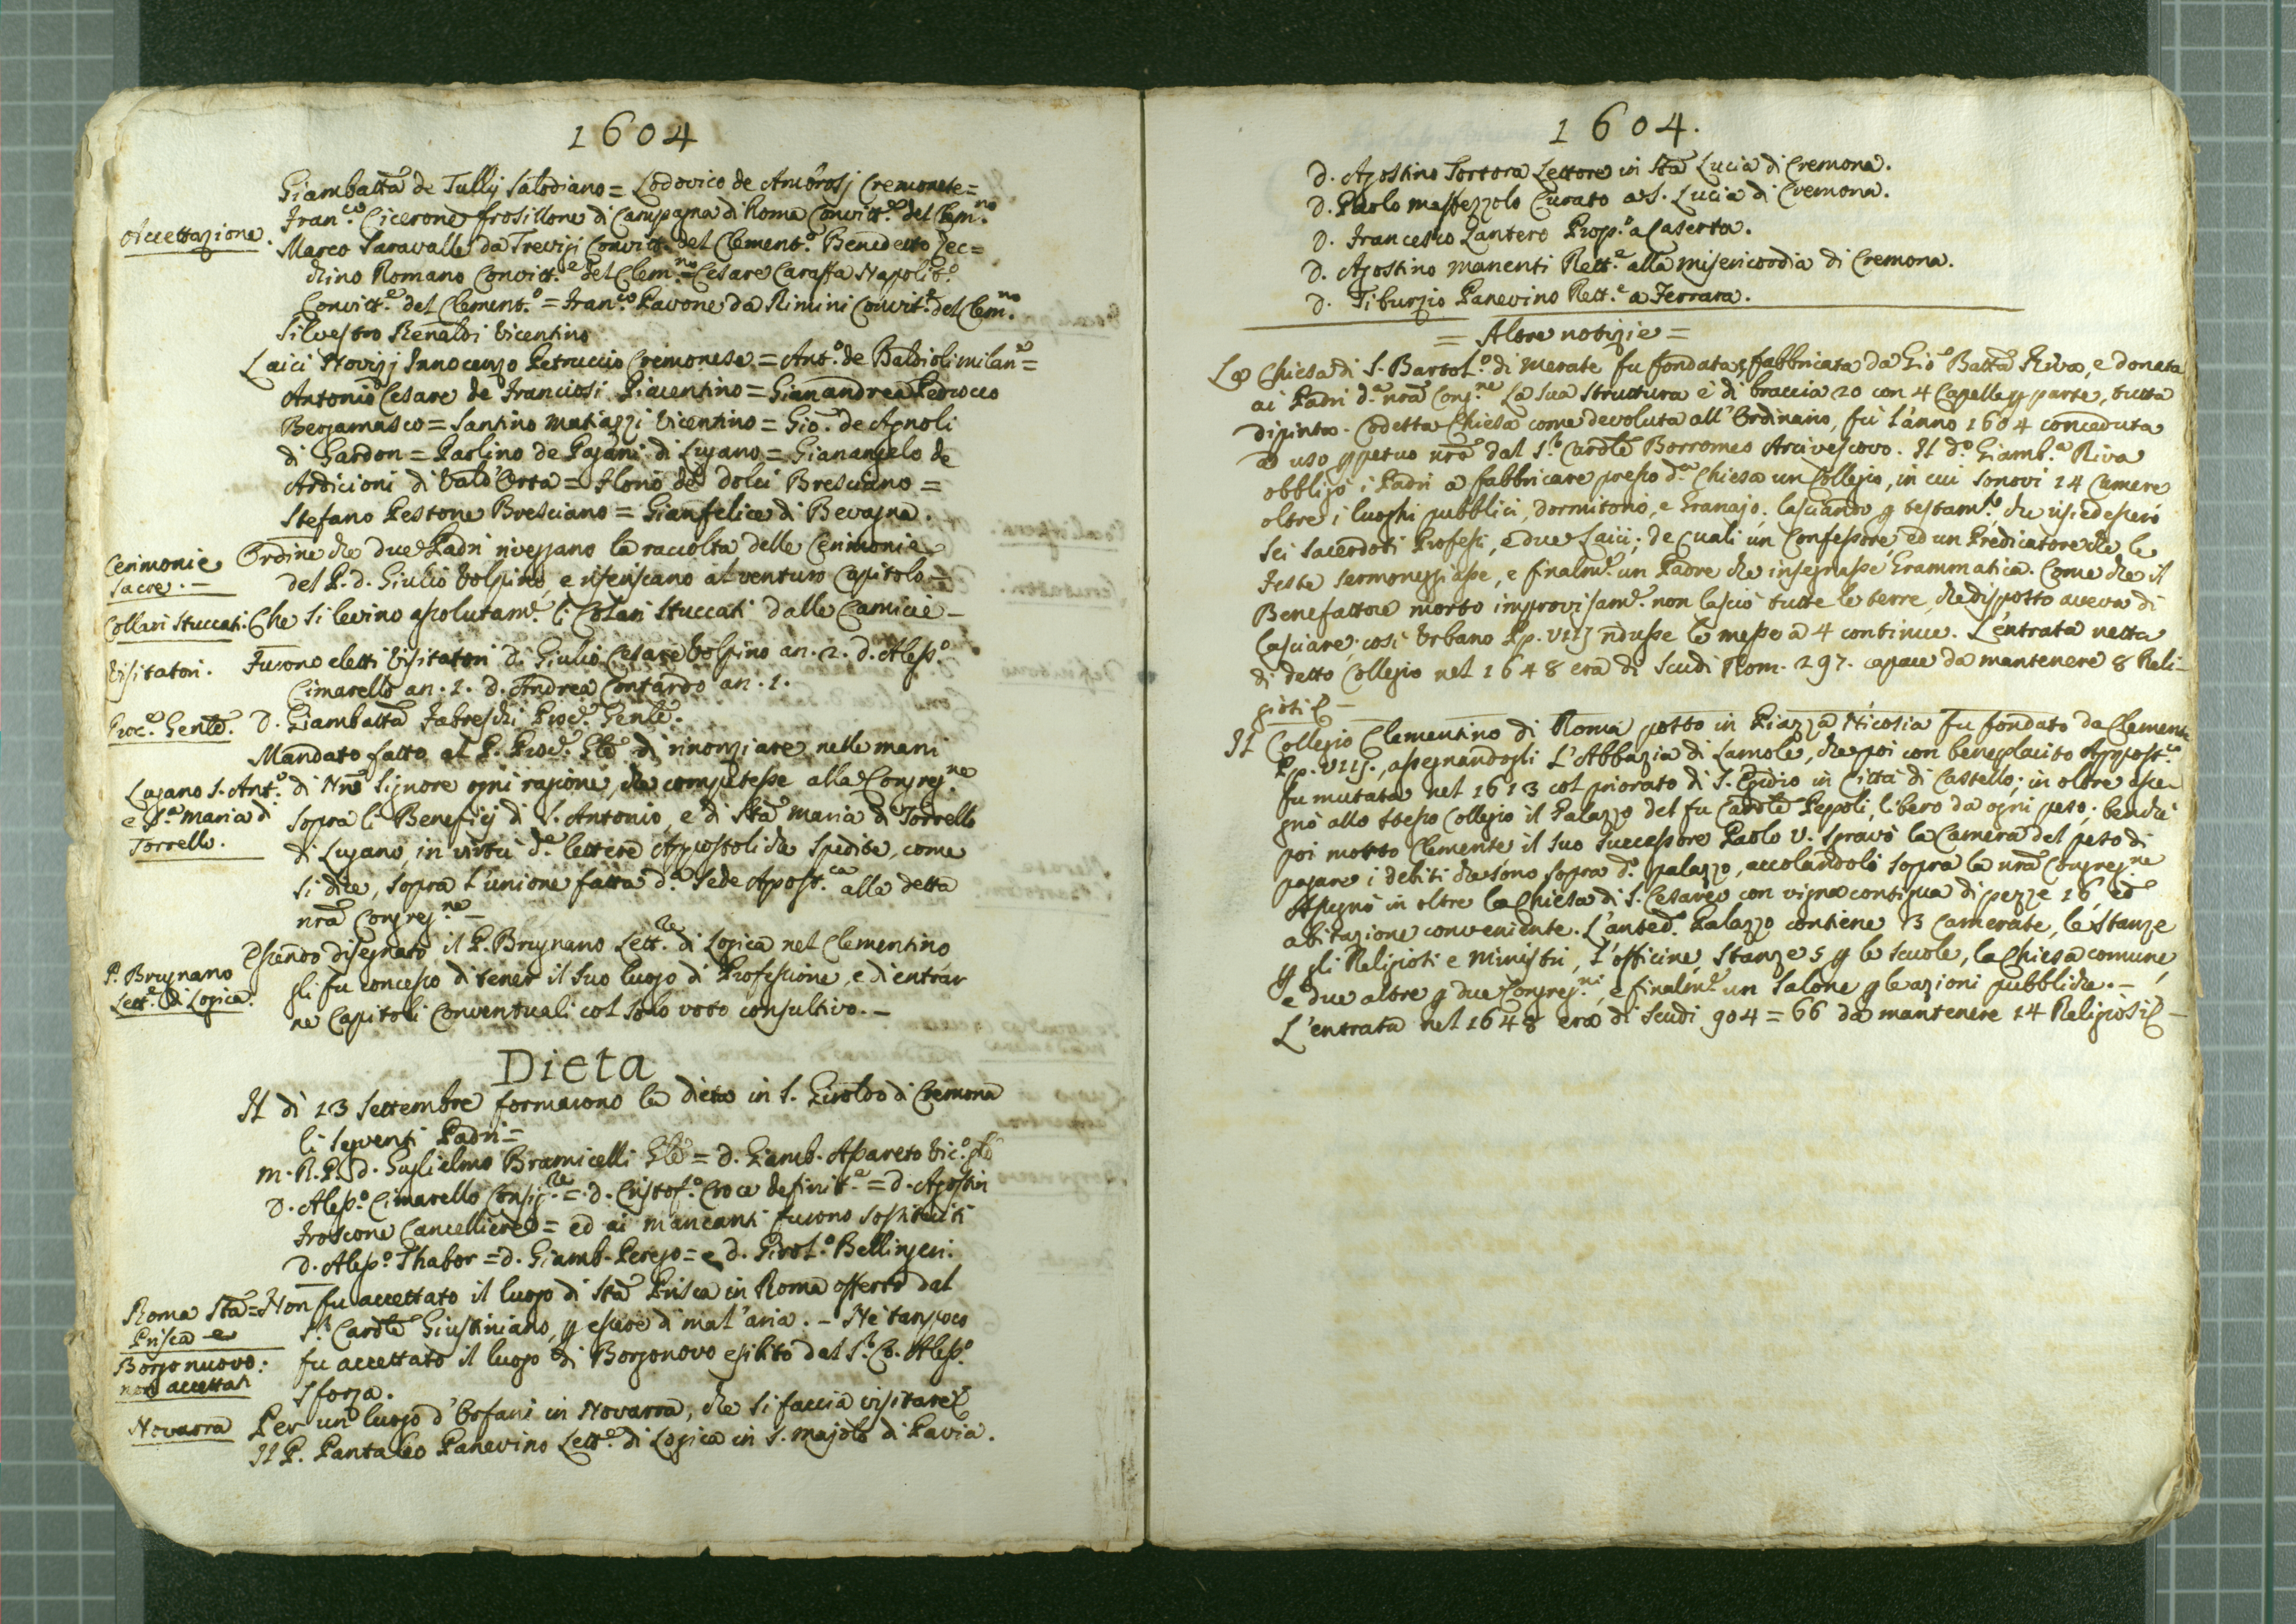 1604
Giambatta de Tullij Salodiano = Lodovico de Ambrosj Cremonese =
Accettazione. Fran.co Cicerone frosillone di Campagna di Roma Convitt.e del Clem.no
Marco Saravalle da Trevigi Convitt.e del Clement.o Benedetto Zec=
chino Romano Convitt.e del Clem.no = Cesare Caraffa Napolit.o
Convitt.e del Clement.o = Fran.co Pavone da Rimini Convit.e del Clem.no
Silvestro Renaldi Vicentino
Laici Novizj Innocenzo Petruccio Cremonese = Ant.o de Baldioli milan.e =
Antonio Cesare de Franciosi Piacentino = Gianandrea Pedrocco
Bergamasco = Santino Matiazzi Vicentino = Gio. de Agnoli
di Gardon = Paolino de Pagani di Lugano = Gianangelo de
Ardicioni di Vald'Orta = Flonio de dolci Bresciano =
Stefano Pestone Bresciano = Gianfelice di Bevagna.
Cerimonie Ordine che due Padri riveggano la raccolta delle Cerimonie
sacre. - del P. d. Giulio Volpino, e riferiscano al venturo Capitolo -
Collari stuccati. Che si levino assolutam.e li Colari stuccati dalle Camicie -
Visitatori. Furono eletti Visitatori D. Giulio Cesare Volpino an. 2. d. Aless.o
Cimarello an. 1. d. Andrea Contardo an. 1.
Proc.e Genle. D. Giambatta Fabreschi Proc.e Genle.
Mandato fatto al P. Proc.e Gle di rinonziare nelle mani
Lugano S. Ant.o di Nro Signore ogni ragione, che competesse alla Congreg.ne
e S.a Maria di sopra li Beneficj di S. Antonio, e di Sta Maria di Torrello
Torrello. di Lugano, in virtù d.e lettere Appostoliche spedite, come
si dice, sopra l'unione fatta d.a Sede Apost.ca alla detta
nra Congreg.ne -
Essendo disegnato il P. Brugnano Lett.re di Logica nel Clementino
P. Brugnano gli fu concesso di tener il suo luogo di Professione, e di entrar
Lett.e di Logica. ne Capitoli Conventuali col solo voto consultivo. -
Dieta
Il dì 13 Settembre formarono la dieta in S. Giroldo di Cremona
li seguenti Padri =
M. R. P. D. Guglielmo Bramicelli Gle = D. Giamb. Assareto Vic.o gle
D. Aless.o Cimarello Consig.re = D. Cristof.o Croce definit.e = D. Agostin
Froscone Cancelliere = ed ai mancanti furono sostituiti
D. Aless.o Thabor = D. Giamb. Perego = e D. Girol.o Bellingeri.
Roma Sta = Non fu accettato il luogo di Sta Prisca in Roma offerto dal
Prisca e S.r Cardle Giustiniano, p essere di mal'aria. - Ne tanpoco
Borgonuovo: fu accettato il luogo di Borgonovo esibito dal S.r Co. Aless.o
non accettati Sforza.
Novarra Per un luogo d'Orfani in Novarra, che si faccia visitare
Il P. Pantaleo Panevino Lett.e di Logica in S. Majolo di Pavia.
1604.
D. Agostino Tortora Lettore in Sta Lucia di Cremona.
D. Paolo Maffezzolo Curato a S. Lucia di Cremona.
D. Francesco Lantero Prop.o a Caserta.
D. Agostino Manenti Rett.e alla Misericordia di Cremona.
D. Tiburzio Panevino Rett.e a Ferrara.
= Altre notizie =
La Chiesa di S. Bartol.o di Merate fu fondata, e fabbricata da Gio Batta Riva, e donata
ai Padri d.a nra Cong.ne La sua struttura è di braccia 20 con 4 Capelle p parte, tutta
dipinta. Codetta Chiesa come devoluta all'Ordinario, fu l'anno 1604 conceduta
a uso ppetuo nro dal S.r Cardle Borromeo Arcivescovo. Il d.o Giamb.a Riva
obbligò i Padri a fabbricare presso d.a Chiesa un Collegio, in cui sonovi 14 Camere
oltre i luoghi pubblici, dormitorio, e Granajo; lasciando p testam.to che risiedessero
Sei Sacerdoti Professi, e due Laici; de Quali un Confessore, ed un Predicatore che le
Feste sermoneggiasse, e finalm.e un Padre che insegnasse Grammatica. Come che il
Benefattore morto improvisam.e non lasciò tutte le terre, che disposto aveva di
lasciare; così Urbano Pp. VIIJ ridusse le messe a 4 continue. L'entrata netta
di detto Collegio nel 1648 era di Scudi Rom. 297. capace da mantenere 8 Reli-
giosi -
Il Collegio Clementino di Roma posto in Piazza Nicosia fu fondato da Clemente
Pp. VIIJ., assegnandogli L'Abbazia di Lamole, che poi con beneplacito Appost.co
fu mutata nel 1613 col priorato di S. Egidio in Città di Castello; in oltre asse-
gnò allo stesso Collegio il Palazzo del fu Cardle Pepoli, libero da ogni peso; benchè
poi morto Clemente il suo successore Paolo V. sgravò la Camera del peso di
pagare i debiti che sono sopra d.o palazzo, accolandoli sopra la nra Congreg.ne
Assegnò in oltre la Chiesa di S. Cesareo con vigna contigua di pezze 16, ed
abitazione conveniente. L'anted.o Palazzo contiene 13 Camerate, le stanze
p gli Religiosi e Ministri, l'officine, stanze 5 p le scuole, la Chiesa comune,
e due altre p due Congreg.ni, e finalm.e un Salone p le azioni pubbliche. -
L'entrata nel 1648 era di Scudi 904 = 66 da mantenere 14 Religiosi -